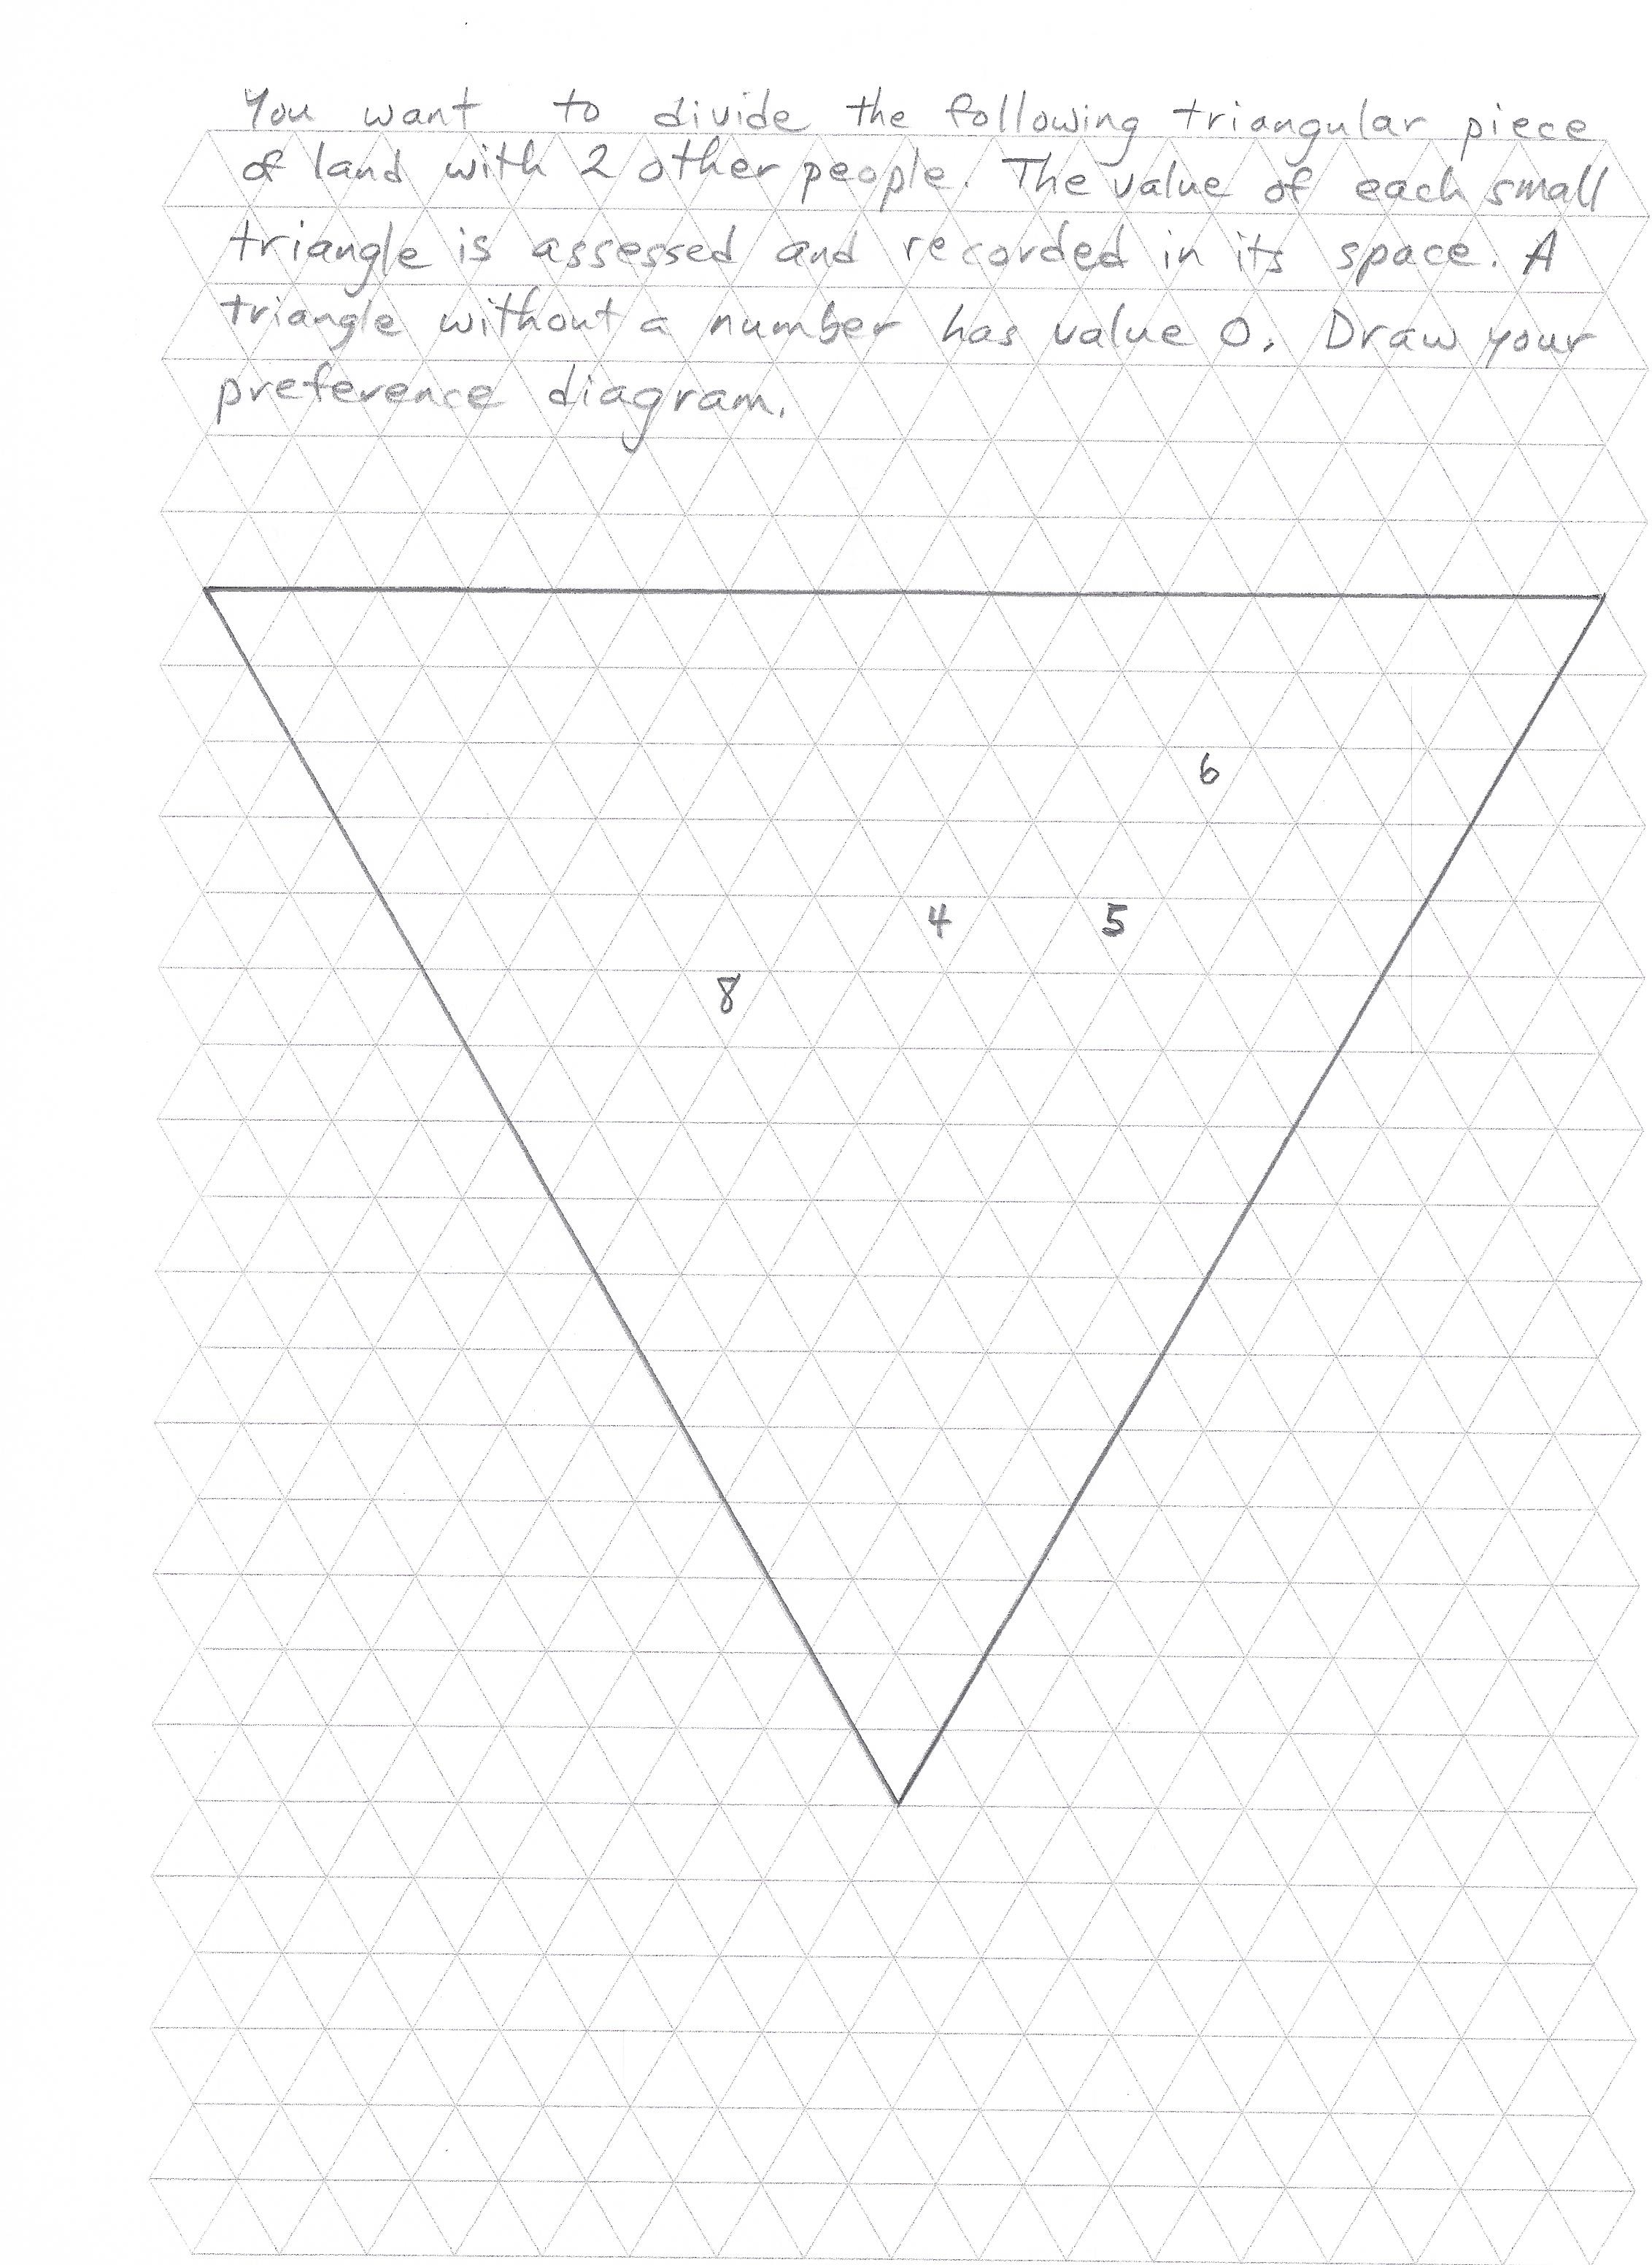 You want to divide the following triangular piece
of land with 2 other people. The value of each small
triangle is assessed and recorded in its space. A
triangle without a number has value 0. Draw your
preference diagram.
6
4 5
8